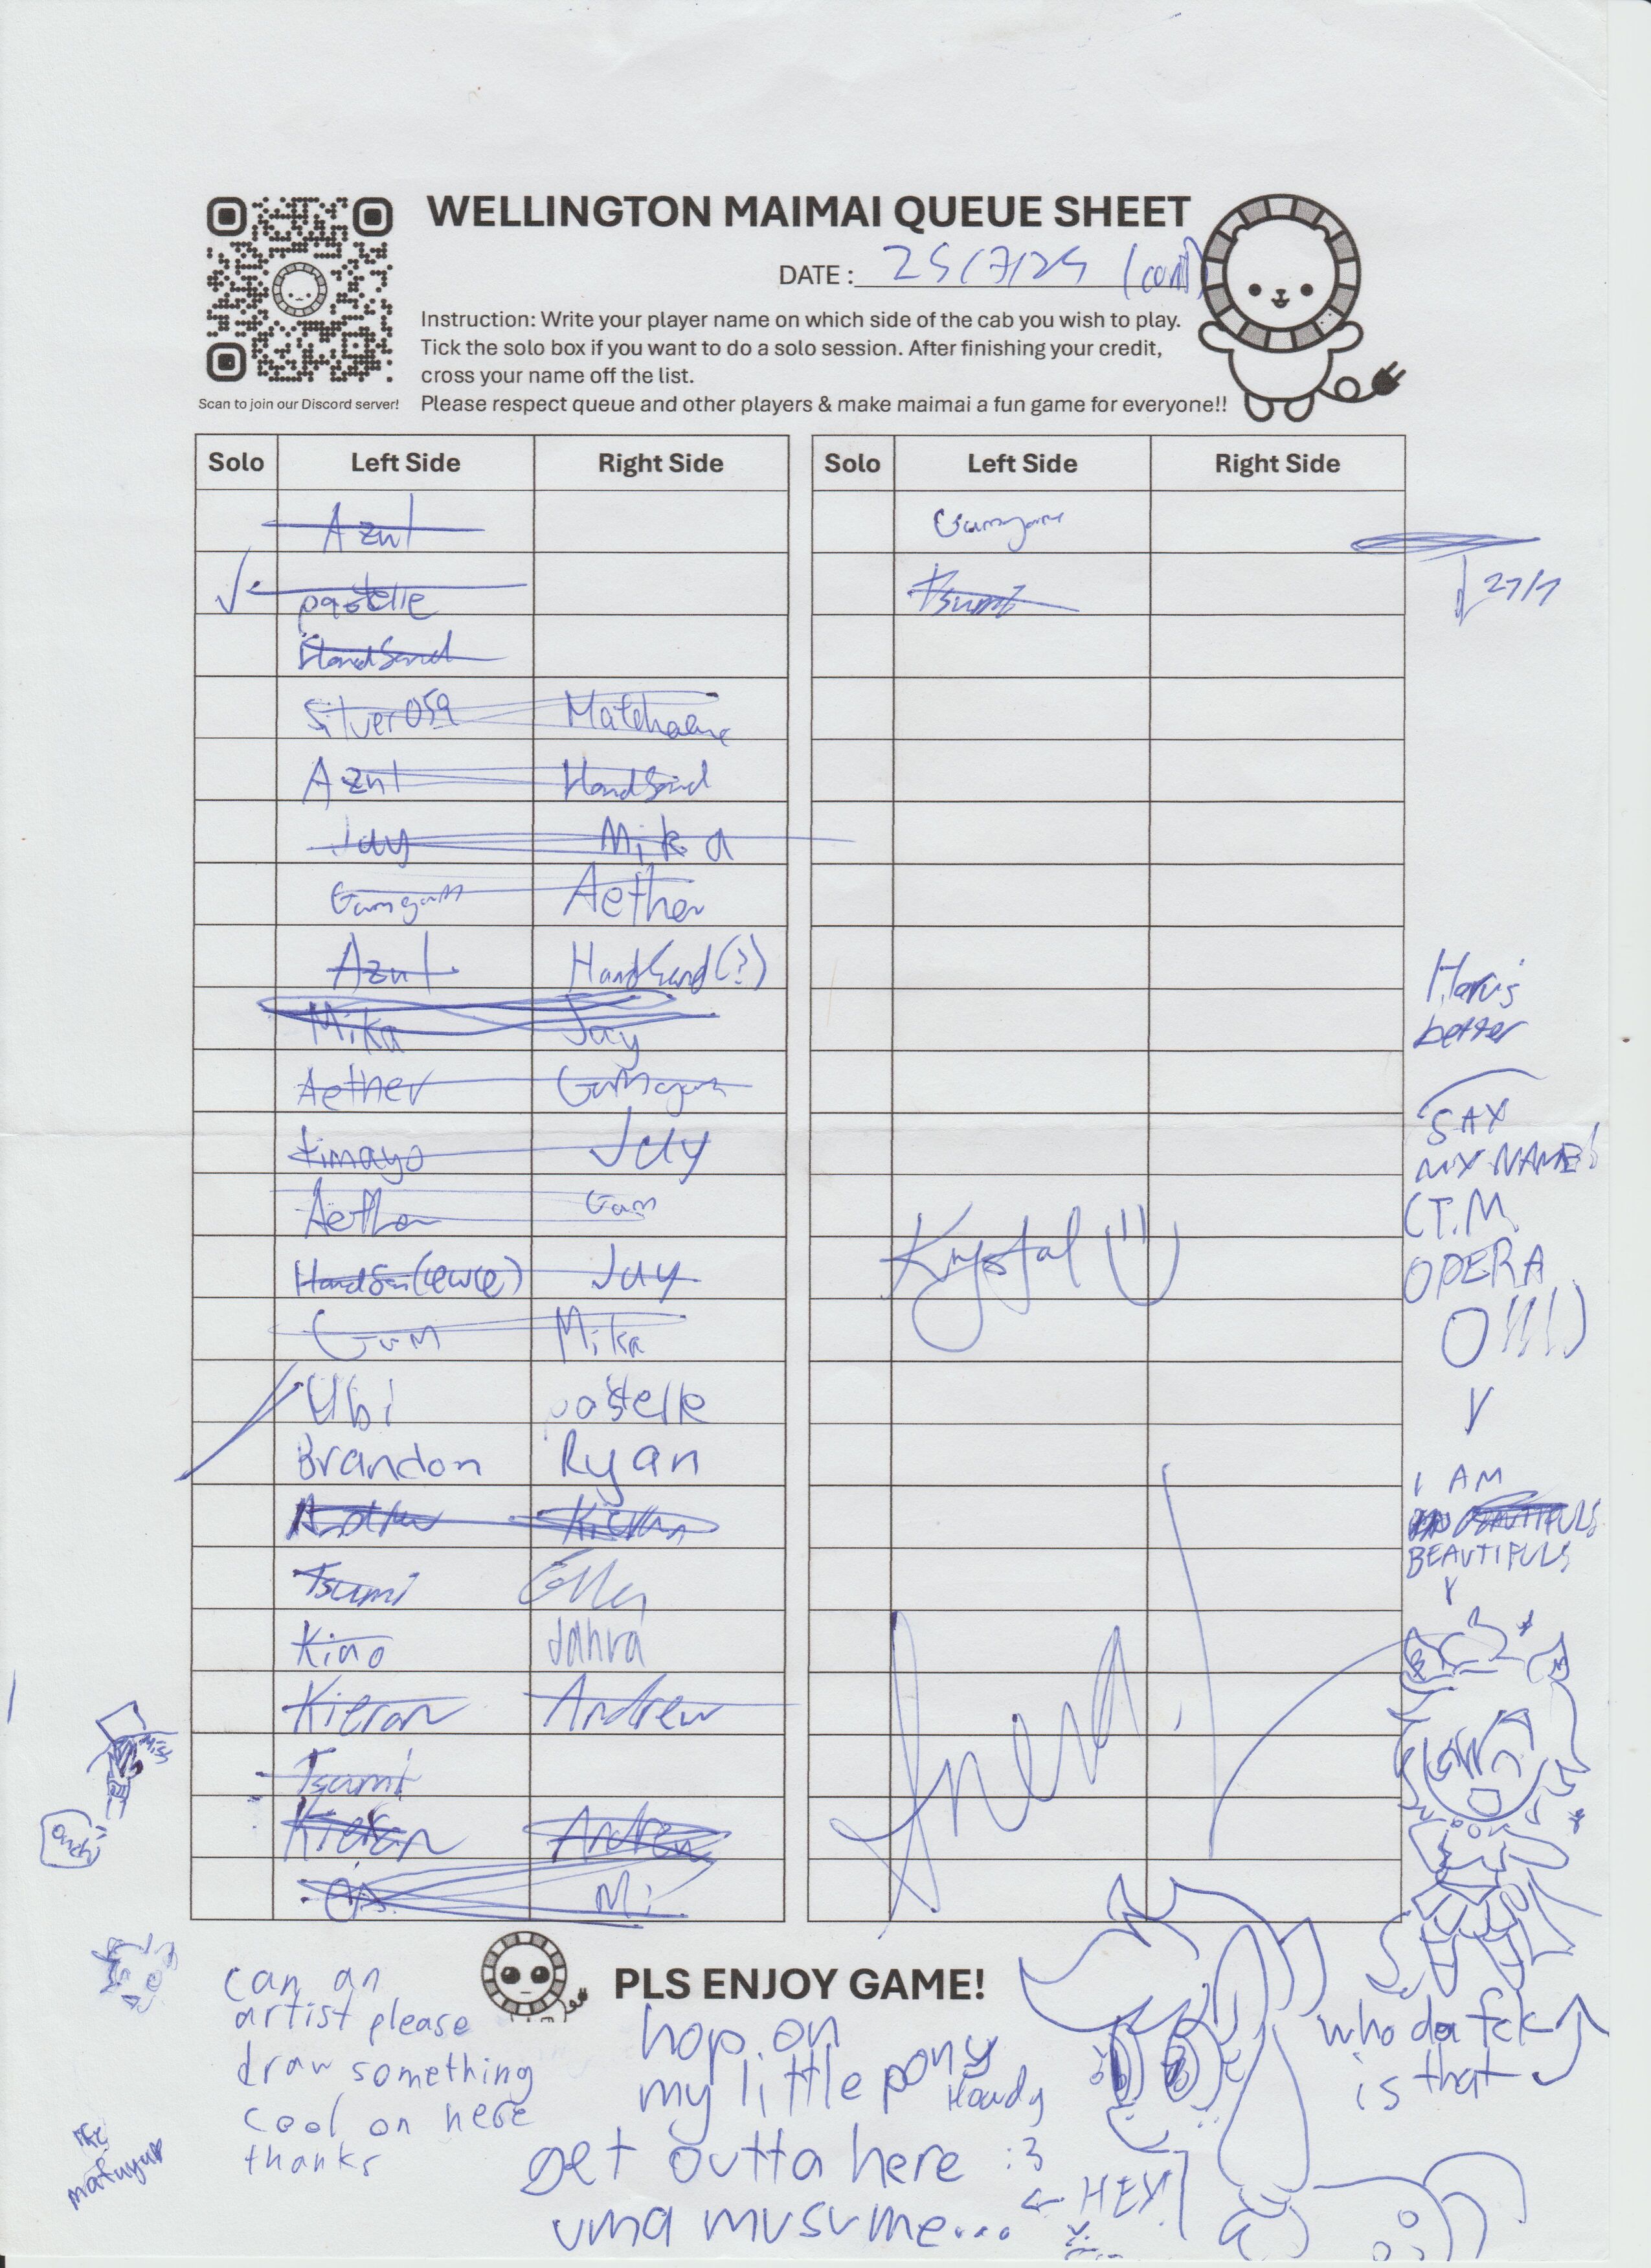 WELLINGTON MAIMAI QUEUE SHEET
DATE : 25/7/25 (cont)
Instruction: Write your player name on which side of the cab you wish to play.
Tick the solo box if you want to do a solo session. After finishing your credit,
cross your name off the list.
Please respect queue and other players & make maimai a fun game for everyone!!
Scan to join our Discord server!
Solo Left Side Right Side
Azul
pastelle
HandSand
Silver059
Azul HandSand
Jay Mika
Gumgum Aether
Azul HandSand(?)
Mika Jay
Aether Gumgum
timayo Jay
Aether Gum
Jay
Gum Mika
Ubi pastelle
Brandon Ryan
Andrew Kieran
Tsumi
Kino Jahra
Kieran Andrew
Tsumi
Kieran Andrew
Mi
Solo Left Side Right Side
Gumgum
Tsumi
27/7
Krystal
Haru's
better
SAY
MY NAME!
(T.M.
OPERA
O!!!!)
I AM
BEAUTIFUL
Miss
Onch
PLS ENJOY GAME!
can an
artist please
draw something
cool on here
thanks
hop on
my little pony
Howdy
get outta here :3
uma musume...
← HEY!
who da fck
is that
mafuyu